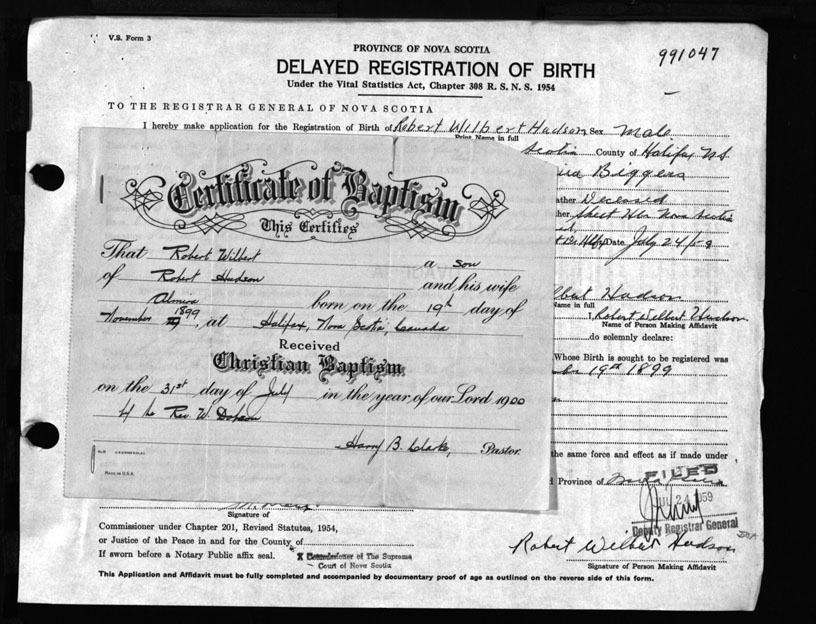 V.S. Form 3
991047
PROVINCE OF NOVA SCOTIA
DELAYED REGISTRATION OF BIRTH
Under the Vital Statistics Act, Chapter 308 R. S. N. S. 1954
TO THE REGISTRAR GENERAL OF NOVA SCOTIA
I hereby make application for the Registration of Birth of Robert Wilbert Hudson Sex Male
Print Name in full
Scotia County of Halifax N.S.
Biggers
ather Deceased
her Nova Scotia
Date July 24/58
lbert Hudson
me in full
I, Robert Wilbert Hudson
Name of Person Making Affidavit
do solemnly declare:
Whose Birth is sought to be registered was
ber 19th 1899
the same force and effect as if made under
Province of Nova Scotia
FILED
1959
Deputy Registrar General
Certificate of Baptism
This Certifies
That Robert Wilbert a son
of Robert Hudson and his wife
Almira born on the 19th day of
November 1899, at Halifax, Nova Scotia, Canada
Received
Christian Baptism
on the 31st day of July in the year of our Lord 1900
by the Rev. W. Dobson
Harry B. Clarke, Pastor.
MADE IN U.S.A.
Signature of
Commissioner under Chapter 201, Revised Statutes, 1954,
or Justice of the Peace in and for the County of
If sworn before a Notary Public affix seal.
X Commissioner of The Supreme
Court of Nova Scotia
Robert Wilbert Hudson
Signature of Person Making Affidavit
This Application and Affidavit must be fully completed and accompanied by documentary proof of age as outlined on the reverse side of this form.